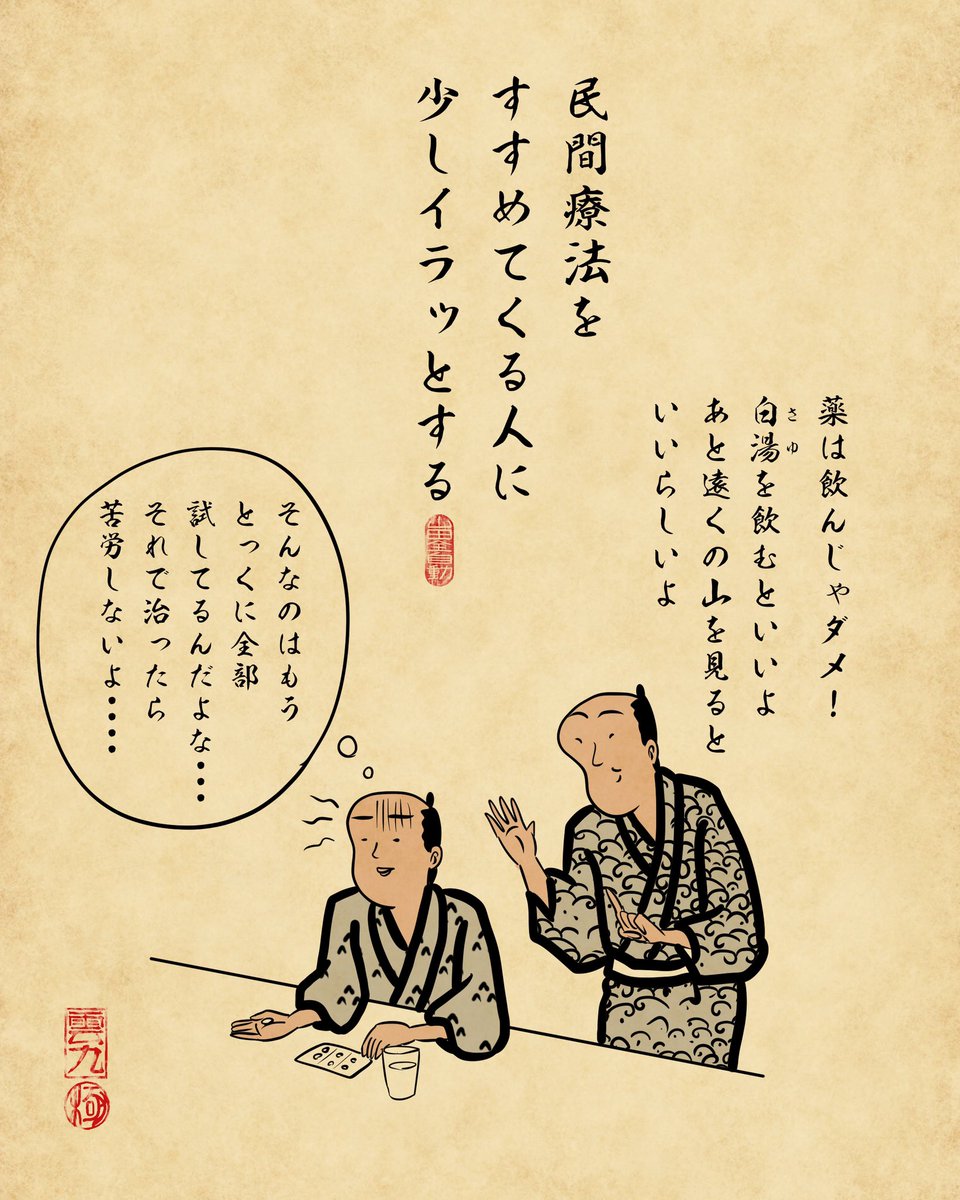 民間療法を
すすめてくる人に
少しイラッとする
薬は飲んじゃダメ！
白湯を飲むといいよ
さゆ
あと遠くの山を見ると
いいらしいよ
そんなのはもう
とっくに全部
試してるんだよな・・・
それで治ったら
苦労しないよ・・・・・